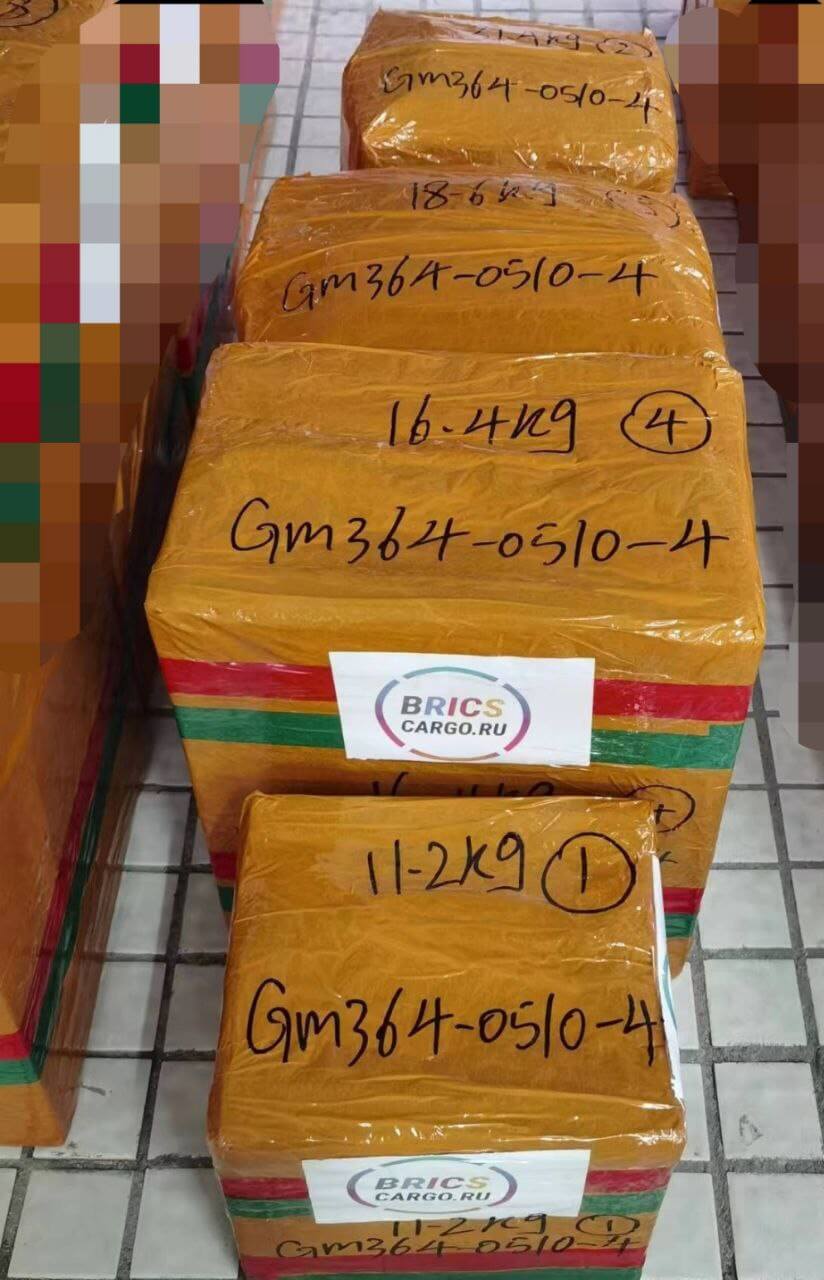 Gm364-0510-4
18-6kg
Gm364-0510-4
16.4kg ④
Gm364-0510-4
BRICS
CARGO.RU
11-2kg ①
Gm364-0510-4
BRICS
CARGO.RU
11-2kg ①
Gm364-0510-4